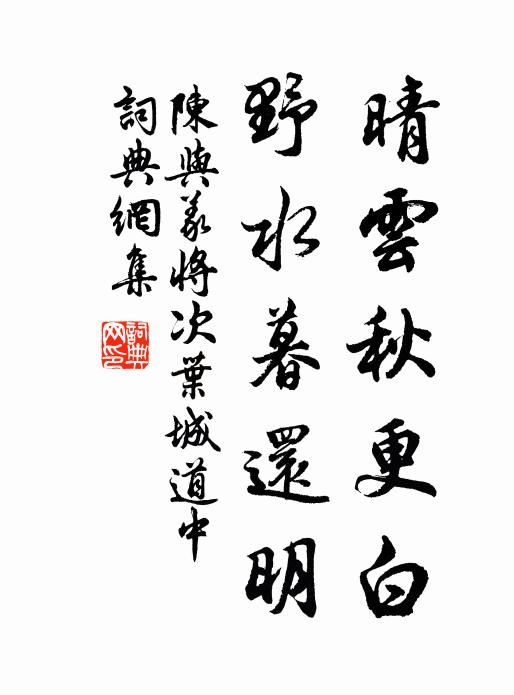 晴雲秋更白
野水暮還明
陳與義將次葉城道中
詞典網集
詞典网印